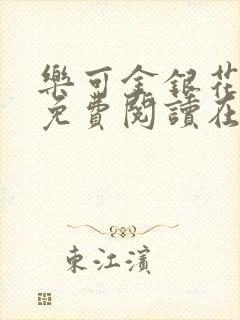 樂可金銀花
免費閱讀在
東江濱